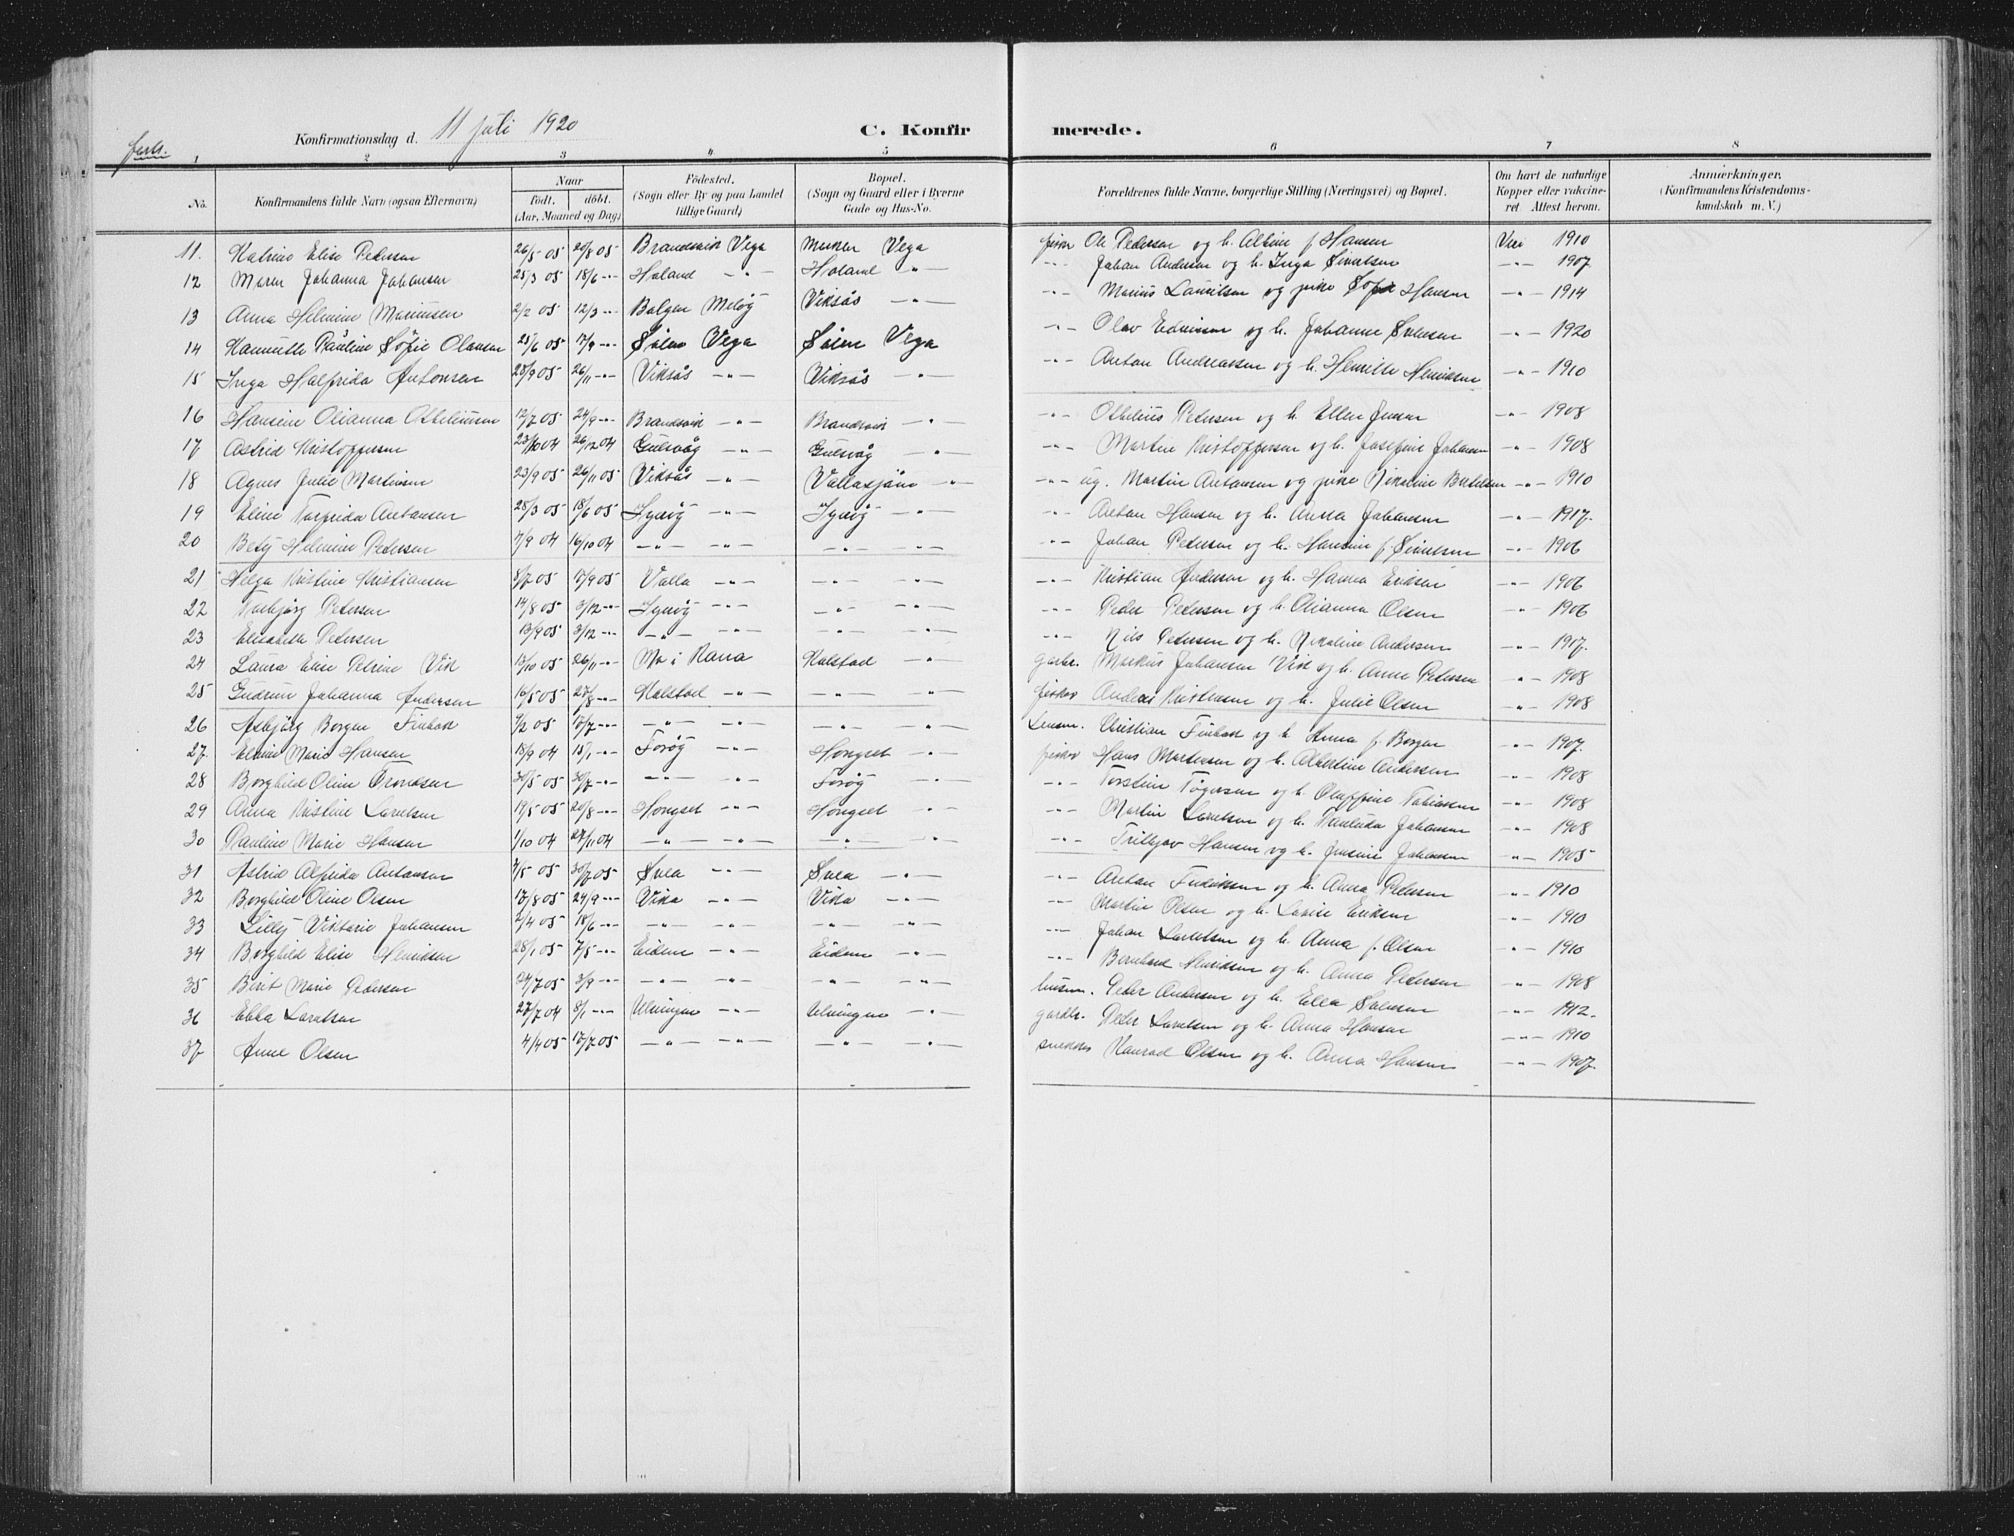 Konfirmationsdag d. 11 juli 1920 C. Konfirmerede.
forts. 1 2 3 4 5 6 7 8
No. Konfirmandens fulde Navn (ogsaa Efternavn) Naar født. døbt. (Aar, Maaned og Dag) Fødested. (Sogn eller By og paa Landet tillige Gaard) Bopæl. (Sogn og Gaard eller i Byerne Gade og Hus-No. Forældrenes fulde Navne, borgerlige Stilling (Næringsvei) og Bopæl. Om havt de naturlige Kopper eller vakcineret. Attest herom. Anmærkninger. (Konfirmandens Kristendomskundskab m. V.)
11. Katrine Elise Pedersen 26/5 05 20/8 05 Brandsvik Vega Vega fisker Ole Pedersen og h. Albine f. Hansen Vac 1910
12 Maren Johanna Johansen 25/3 05 18/6 -"- Holand -"- Holand -"- -"- Johan Andersen og h. Inga Sivertsen -"- 1907
13 Anna Helmine Mariusen 2/2 05 12/3 -"- Bolgen Meløy Viksås -"- -"- Marius Lauritsen og pike Sofie Hansen -"- 1914
14 Pauline Sofie Olausen 25/6 05 17/9 -"- Sølen Vega Sølen Vega -"- Olav Edvinsen og h. Johanne Svensen -"- 1920
15 Inga Halfrida Antonsen 20/9 05 26/11 -"- Viksås -"- Viksås -"- -"- Anton Andreassen og h. Henritte Henriksen -"- 1910
16 Hansine Olianna Ottiliussen 12/7 05 24/9 -"- Brandsvik -"- Brandsvik -"- -"- Ottilius Pedersen og h. Ellen Jensen -"- 1908
17 Astrid Kristoffersen 23/10 04 26/12 04 Gulsvåg -"- Gulsvåg -"- -"- Martin Kristoffersen og h. Josefine Johansen -"- 1908
18 Agnes Julie Martinsen 23/9 05 26/11 05 Viksås -"- Vallasjøen -"- -"- ug. Martin Antonsen og pike Nikoline Bertelsen -"- 1910
19 Eline Torfrida Antonsen 28/3 05 18/6 05 Igerøy -"- Igerøy -"- -"- Anton Hansen og h. Anna Johansen -"- 1917.
20 Betzy Helmine Pedersen 7/9 04 16/10 04 -"- -"- -"- -"- -"- Johan Pedersen og h. Hansine f. Sivertsen -"- 1906
21 Helga Kristine Kristiansen 8/7 05 17/9 05 Valla -"- -"- -"- -"- Kristian Andersen og h. Hanna Eriksen -"- 1906
22 Pedersen 14/8 05 3/12 -"- Igerøy -"- -"- -"- -"- Peder Pedersen og h. Olianna Olsen -"- 1906
23 Elisabeth Pedersen 13/9 05 3/12 -"- -"- -"- -"- -"- -"- Nils Pedersen og h. Nikoline Andersen -"- 1917.
24 Laura Elise Petrine Vik 13/10 05 26/11 -"- Mo i Rana Kalstad -"- garbr. Markus Johansen Vik og h. Anne Petersen -"- 1908
25 Gudrun Johanna Andersen 16/5 05 27/8 -"- Kalstad -"- -"- -"- fisker Anders Kristensen og h. Julie Olsen -"- 1908
26 Asbjørg Borgen Finbak 9/2 05 16/7 -"- -"- -"- -"- -"- Lensm. Kristian Finbak og h. Anna f. Borgen -"- 1907.
27. Marie Hansen 18/9 04 15/1 -"- Forøy -"- Hongset -"- fisker Hans Mortensen og h. Albertine Andersen -"- 1908
28 Borghild Oline 30/5 05 30/7 -"- -"- -"- Forøy -"- -"- Torstein Tøgersen og h. Oluffine Tobiassen -"- 1908
29 Anna Kristine Lorntsen 19/5 05 20/8 -"- Hongset -"- Hongset -"- -"- Martin Lorntsen og h. Johansen -"- 1908
30 Pauline Marie Hansen 1/10 04 27/11 04 -"- -"- -"- -"- -"- Hansen og h. Jensine Johansen -"- 1905
31 Astrid Alfrida Antonsen 2/5 05 30/7 05 Svea -"- Svea -"- -"- Anton Fredriksen og h. Anna Pedersen -"- 1910
32 Borghild Oline Olsen 13/8 05 24/9 -"- Vika -"- Vika -"- -"- Martin Olsen og h. Lovise Eriksen -"- 1910
33 Lilly Viktorie Johansen 2/4 05 18/6 -"- -"- -"- -"- -"- -"- Johan Lorntsen og h. Anna f. Olsen -"- 1910
34 Borghild Elise Henriksen 28/1 05 7/5 -"- Eidem -"- Eidem -"- -"- Bernhard Henriksen og h. Anna Pedersen -"- 1908
35 Berit Marie Pedersen 24/7 05 3/9 -"- -"- -"- -"- -"- husm. Peder Andersen og h. Ella -"- 1912.
36 Ebba Lorntsen 27/7 04 8/1 -"- Ulvingen -"- Ulvingen -"- gardbr. Peter Lorntsen og h. Anna Hansen -"- 1910
37 Anne Olsen 4/4 05 17/7 05 -"- -"- -"- -"- snedker Konrad Olsen og h. Anna Hansen -"- 1907.